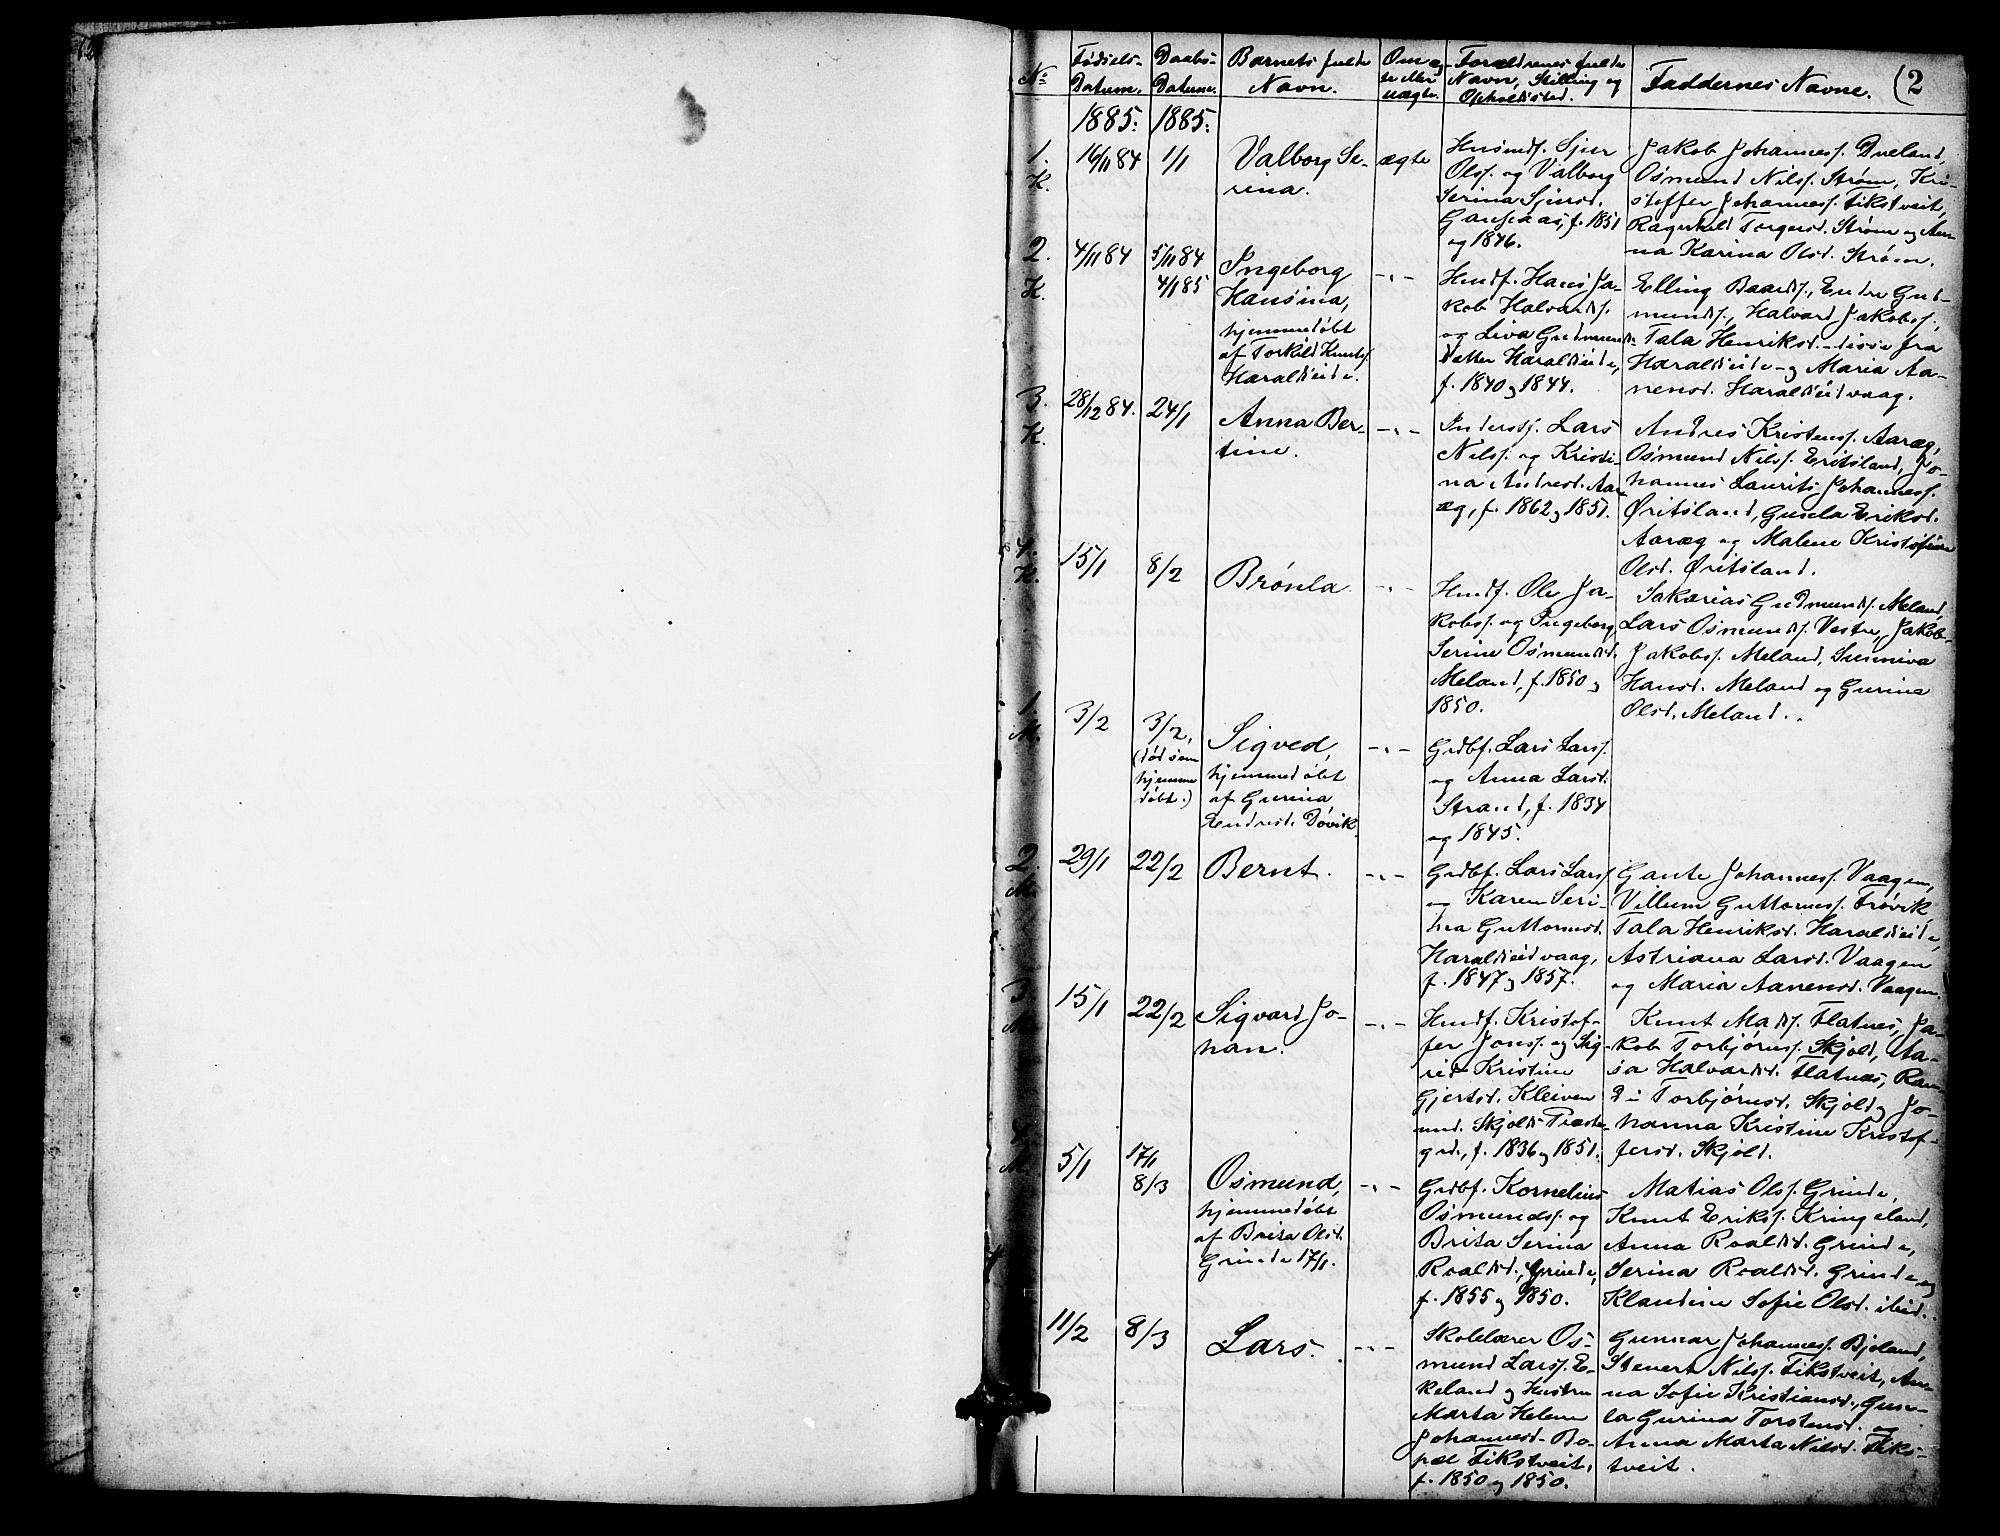 No. Fødsels-Datum. Daabs-Datum. Barnets fulde Navn. Om ægte eller uægte. Forældrenes fulde Navn, Stilling og Opholdssted. Faddernes Navne. (2
1885: 1885:
1. K. 16/11 84 1/1 Valborg Se-
rina.
ægte
Husmdf. Sjur
Olsf. og Valborg
Serina Sjursd.
f. 1851
og 1846.
Jakob Johannesf. Dueland,
Osmund Nilsf. Strøm, Kri-
stoffer Johannesf. Fikstveit,
Ragnhild Torgersd. Strøm og An-
na Karina Olsd. Strøm.
2. K. 4/11 84 5/11 84
4/1 85
Ingeborg
Hansina,
hjemmedøbt
af Torkild Knutsf.
Haraldseide.
-"-
Husmdf. Hans Ja-
kob Halvardsf.
og Liva Gudmunds-
datter Haraldseide,
f. 1840 og 1844.
Elling Baardsf., Endre Gud-
mundsf., Halvard Jakobsf.,
Tala Henriksd. - disse fra
Haraldseide - og Maria Aa-
nensd. Haraldseidvaag.
3. K. 28/12 84. 24/1 Anna Ber-
tine.
-"-
Inderstf. Lars
Nilsf. og Kristi-
na Andresd. Aar-
æg, f. 1862 og 1851.
Andres Kristensf. Aaræg,
Osmund Nilsf. Eritsland, Jo-
hannes Laurits Johannesf.
Øritsland, Gunla Eriksd.
Aaræg og Malene Kristofine
Olsd. Øritsland.
4. K. 15/1 8/2 Brønla
-"-
Husmdf. Ole Ja-
kobsf. og Ingeborg
Serine Osmundsd.
Meland, f. 1850 og
1850.
Sakarias Gudmundsf. Meland,
Lars Osmundsf. Vestre, Jakob
Jakobsf. Meland, Sunniva
Hansd. Meland og Gurine
Olsd. Meland.
1. M. 3/2 3/2,
(død som
hjemme
døbt.)
Sigved,
hjemmedøbt
af Gurina
Endresd. Døvik
-"-
Grdbf. Lars Larsf.
og Anna Larsd.
Strand, f. 1834
og 1845.
2. M. 29/1 22/2 Bernt.
-"-
Grdbf. Lars Larsf.
og Karen Seri-
na Guttormsd.
Haraldseidvaag,
f. 1847 og 1857.
Gaute Johannesf. Vaagen,
Villum Guttormsf. Frøvik
Tala Henriksd. Haraldseide,
Astriana Larsd. Vaagen
og Maria Aanensd. Vaagen.
3. M. 15/1 22/2 Sigvard Jo-
han.
-"-
Husmdf. Kristof-
fer Jonsf. og Sig-
rid Kristine
Gjertsd. Kleiven
und. Skjolds Præste-
grd., f. 1836 og 1851.
Knut Madsf. Flatnes, Ja-
kob Torbjørnsf. Skjold, Aa-
sa Halvardsd. Flatnæs, Ran-
di Torbjørnsd. Skjold og Jo-
hanna Kristine Kristof-
fersd. Skjold.
4. M. 5/1 17/1
8/3
Osmund,
hjemmedøbt
af Brita Olsd.
Grinde 17/1.
-"-
Grdbf. Kornelius
Osmundsf. og
Brita Serina
Roaldsd., Grinde,
f. 1855 og 1850.
Matias Olsf. Grinde,
Knut Eriksf. Kringeland,
Anna Roaldsd. Grinde,
Serina Roaldsd. Grinde og
Klaudine Sofie Olsd. ibid.
11/2 8/3 Lars.
-"-
Skolelærer Os-
mund Larsf. E-
keland og Hustru
Marta Helene
Johannesd. Bo-
pæl Fikstveit,
f. 1850 og 1850.
Gunnar Johannesf. Bjoland,
Steuert Nilsf. Fikstveit, An-
na Sofie Kristiansd., Gun-
la Gurina Torstensd. og
Anna Marta Nilsd. Fiks-
tveit.